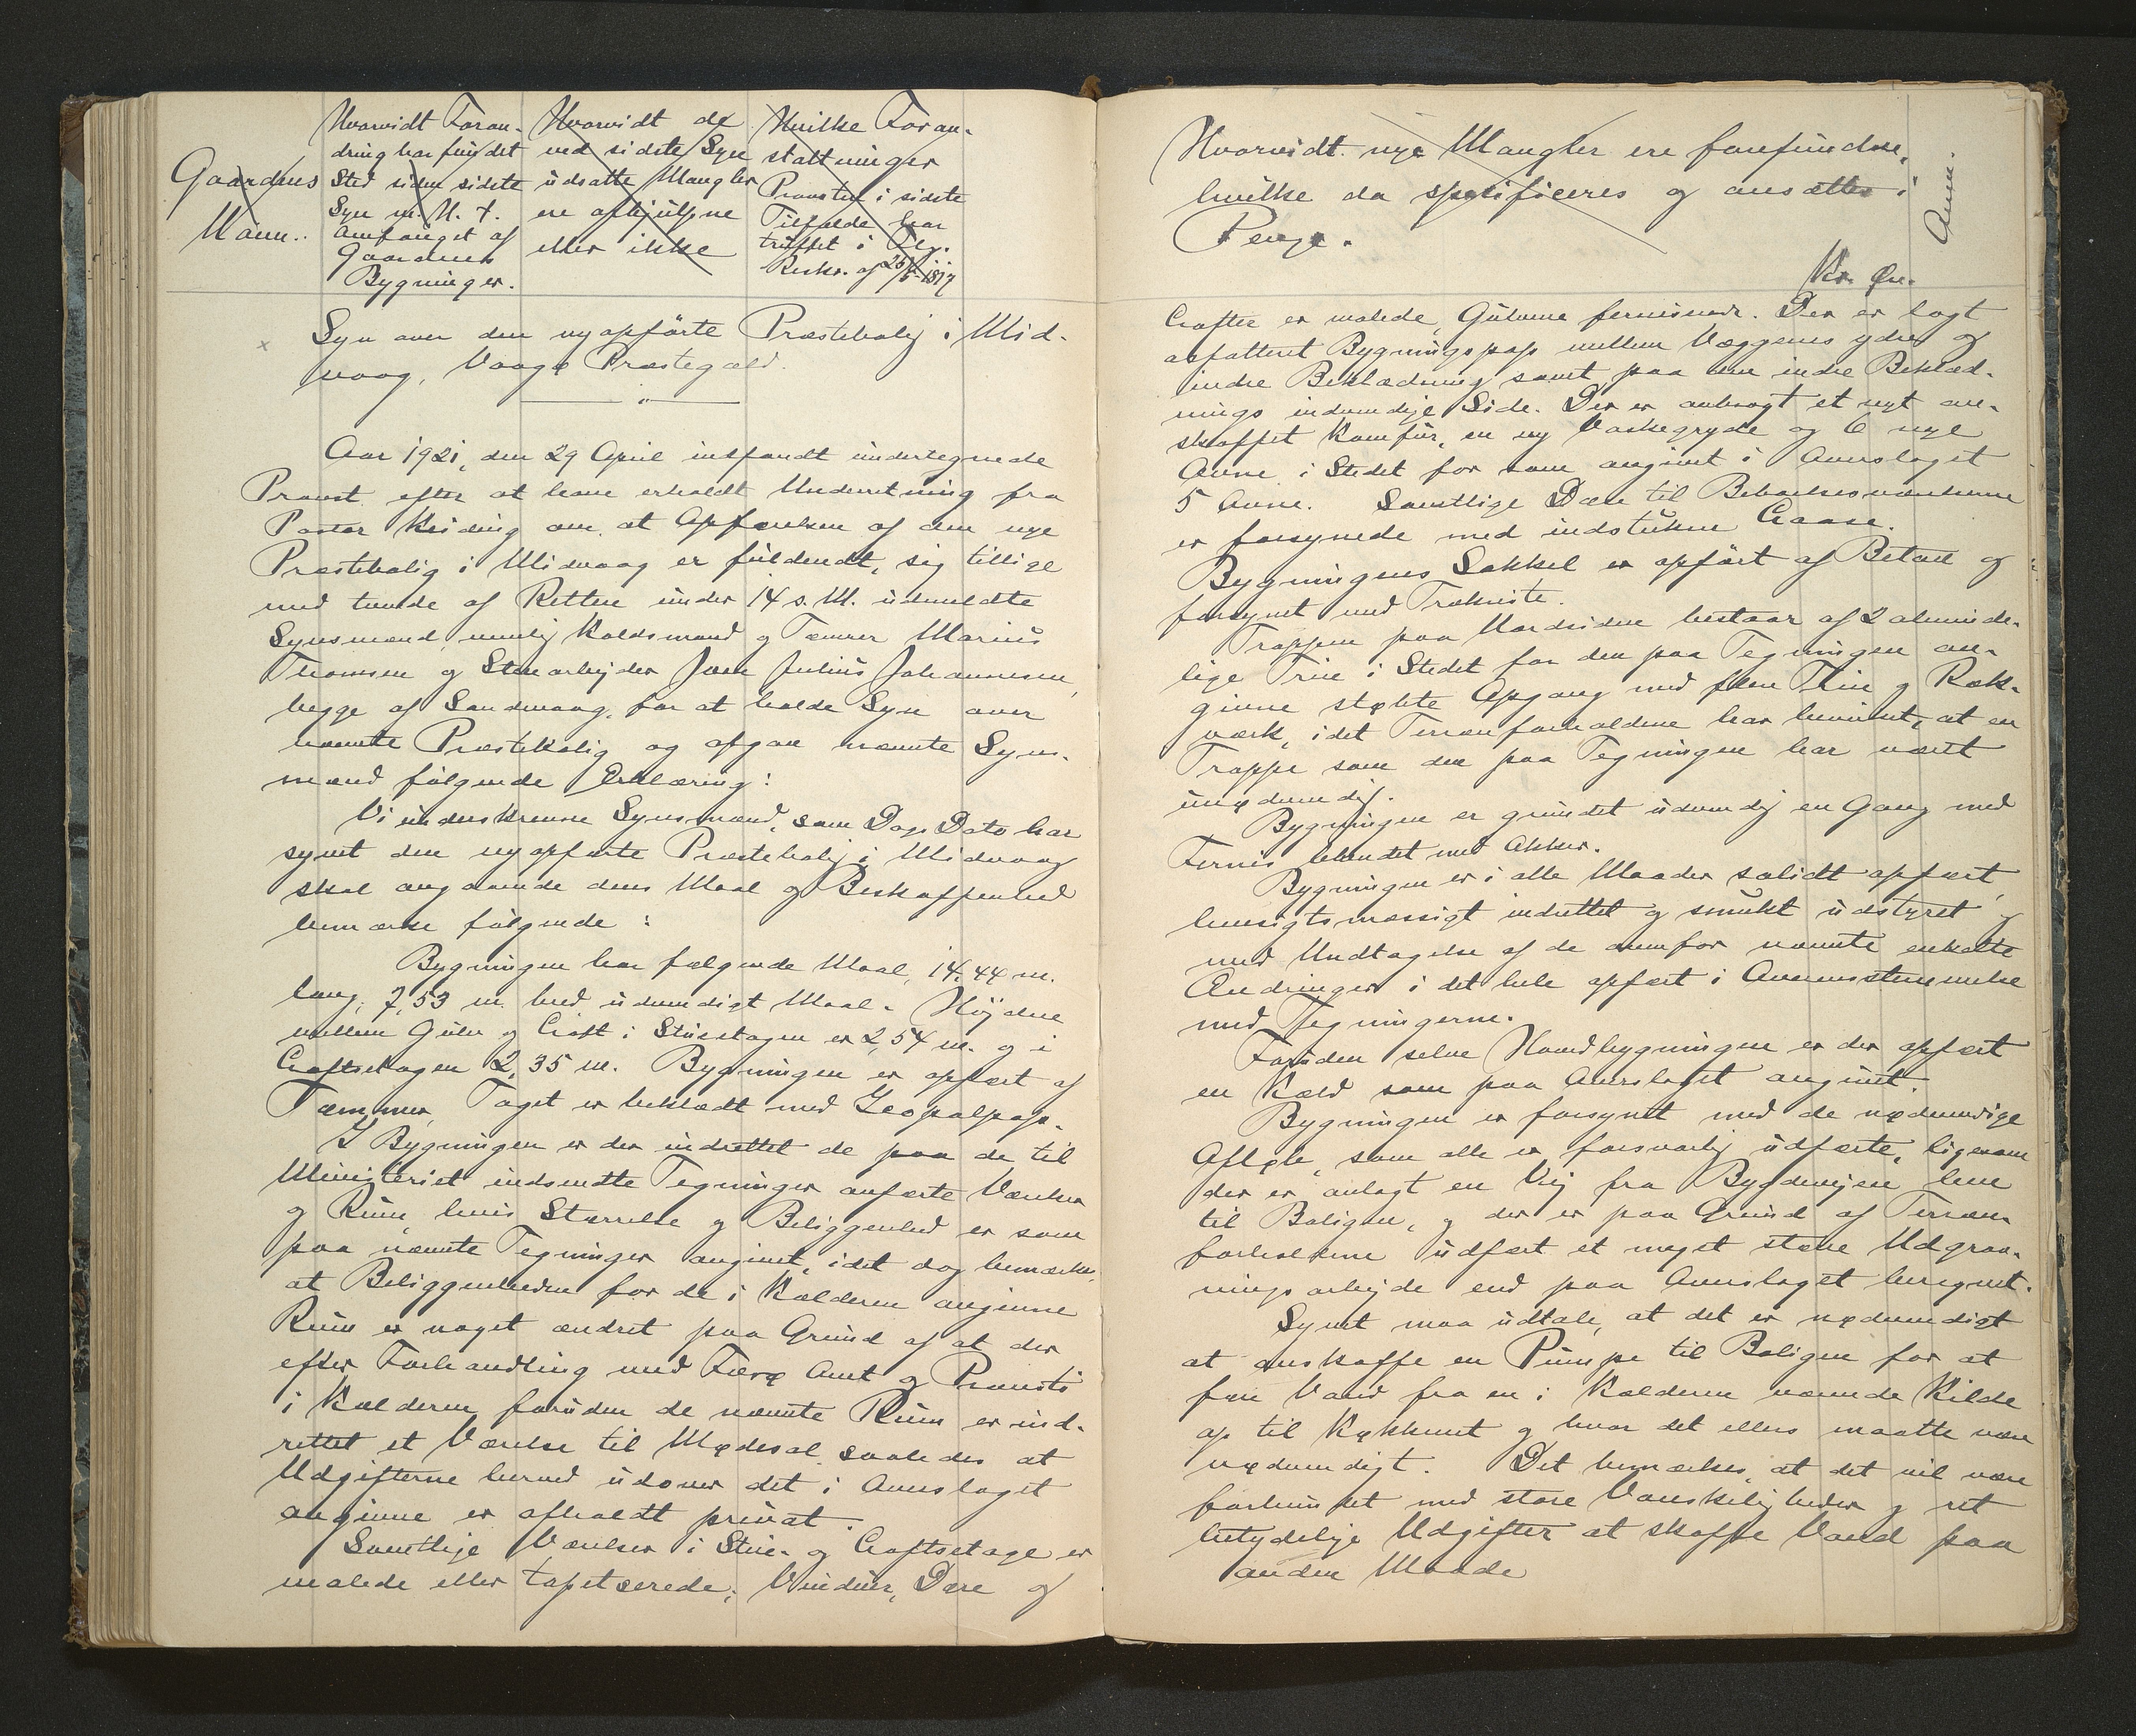 Gaardens
Navn.
Hvorvidt Foran-
dring har fundet
Sted siden sidste
Syn m. H. t.
Omfanget af
Gaardens
Bygninger.
Hvorvidt de
ved sidste Syn
udsatte Mangler
ere afhjulpne
eller ikke
Hvilke Foran-
staltninger
Provsten i sidste
Tilfælde har
truffet i Flg.
Reskr. af 25/5 1817
Syn over den nyopførte Præstebolig i Mid-
vaag, Vaagø Præstegæld.
Aar 1921, den 29 April indfandt undertegnede
Provst efter at have erholdt Underretning fra
Pastor Keiding om at Opførelsen af den nye
Præstebolig i Midvaag er fuldendt, sig tillige
med tvende af Retten under 14 s. M. udmeldte
Synsmænd nemlig Koldsmand og Tømrer Marius
Thomsen og Stenarbejder Joen Julius Johannesen,
begge af Sandevaag, for at holde Syn over
nævnte Præstebolig og afgav nævnte Syns-
mænd følgende Erklæring:
Vi underskrevne Synsmænd, som Dags Dato har
synet den nyopførte Præstebolig i Midvaag
skal angaaende dens Maal og Beskaffenhed
bemærke følgende:
Bygningen har følgende Maal, 14,44 m.
lang, 7,53 m. bred udvendigt Maal. Højden
mellem Gulv og Loft i Stueetagen er 2,54 m. og i
Loftsetagen 2,35 m. Bygningen er opført af
Tømmer, Taget er beklædt med Icopalpap.
I Bygningen er der indrettet de paa de til
Ministeriet indsendte Tegninger anførte Værelser
og Rum, hvis Størrelse og Beliggenhed er som
paa nævnte Tegninger angivet, idet dog bemærkes,
at Beliggenheden for de i Kælderen angivne
Rum er noget ændret paa Grund af at der
efter Forhandling med Færø Amt og Provsti
i Kælderen foruden de nævnte Rum er ind-
rettet et Værelse til Mødesal saaledes at
Udgifterne herved udover det i Overslaget
angivne er afholdt privat.
Samtlige Værelser i Stue- og Loftsetage er
malede eller tapetserede; Vinduer, Døre og
Hvorvidt nye Mangler ere forefundne,
hvilke da specificeres og ansættes i
Penge.
Kr. Øre.
Anm.
Lofter er malede, Gulvene ferniserede. Der er lagt
asfalteret Bygningspap mellem Væggenes ydre og
indre Beklædning samt paa den indre Beklæd-
nings indvendige Side. Der er anbragt et nyt an-
skaffet Komfur, en ny Vaskegryde og 6 nye
Ovne i Stedet for som angivet i Overslaget
5 Ovne. Samtlige Døre til Beboelsesværelserne
er forsynede med indstukne Laase.
Bygningens Sokkel er opført af Beton og
forsynet med Trækriste.
Trappen paa Nordsiden bestaar af 2 alminde-
lige Trin i Stedet for den paa Tegningen an-
givne støbte Opgang med flere Trin og Ræk-
værk, idet Terrænforholdene har bevirket, at en
Trappe som den paa Tegningen har været
unødvendig.
Bygningen er grundet udvendig en Gang med
Fernis blandet med Okker.
Bygningen er i alle Maader solidt opført,
hensigtsmæssigt indrettet og smukt udstyret og
med Undtagelse af de ovenfor nævnte enkelte
Ændringer i det hele opført i Overensstemmelse
med Tegningerne.
Foruden selve Hovedbygningen er der opført
en Kjeld som paa Overslaget angivet.
Bygningen er forsynet med de nødvendige
Afløb, som alle er forsvarlig udførte, ligesom
der er anlagt en Vej fra Bygdevejen hen
til Boligen, og der er paa Grund af Terræn-
forholdene udført et meget større Udgrav-
ningsarbejde end paa Overslaget beregnet.
Synet maa udtale, at det er nødvendigt
at anskaffe en Pumpe til Boligen for at
føre Vand fra en i Kælderen værende Kilde
op til Køkkenet og hvor det ellers maatte være
nødvendigt. Det bemærkes, at det vil være
forbundet med store Vanskeligheder og ret
betydelige Udgifter at skaffe Vand paa
anden Maade